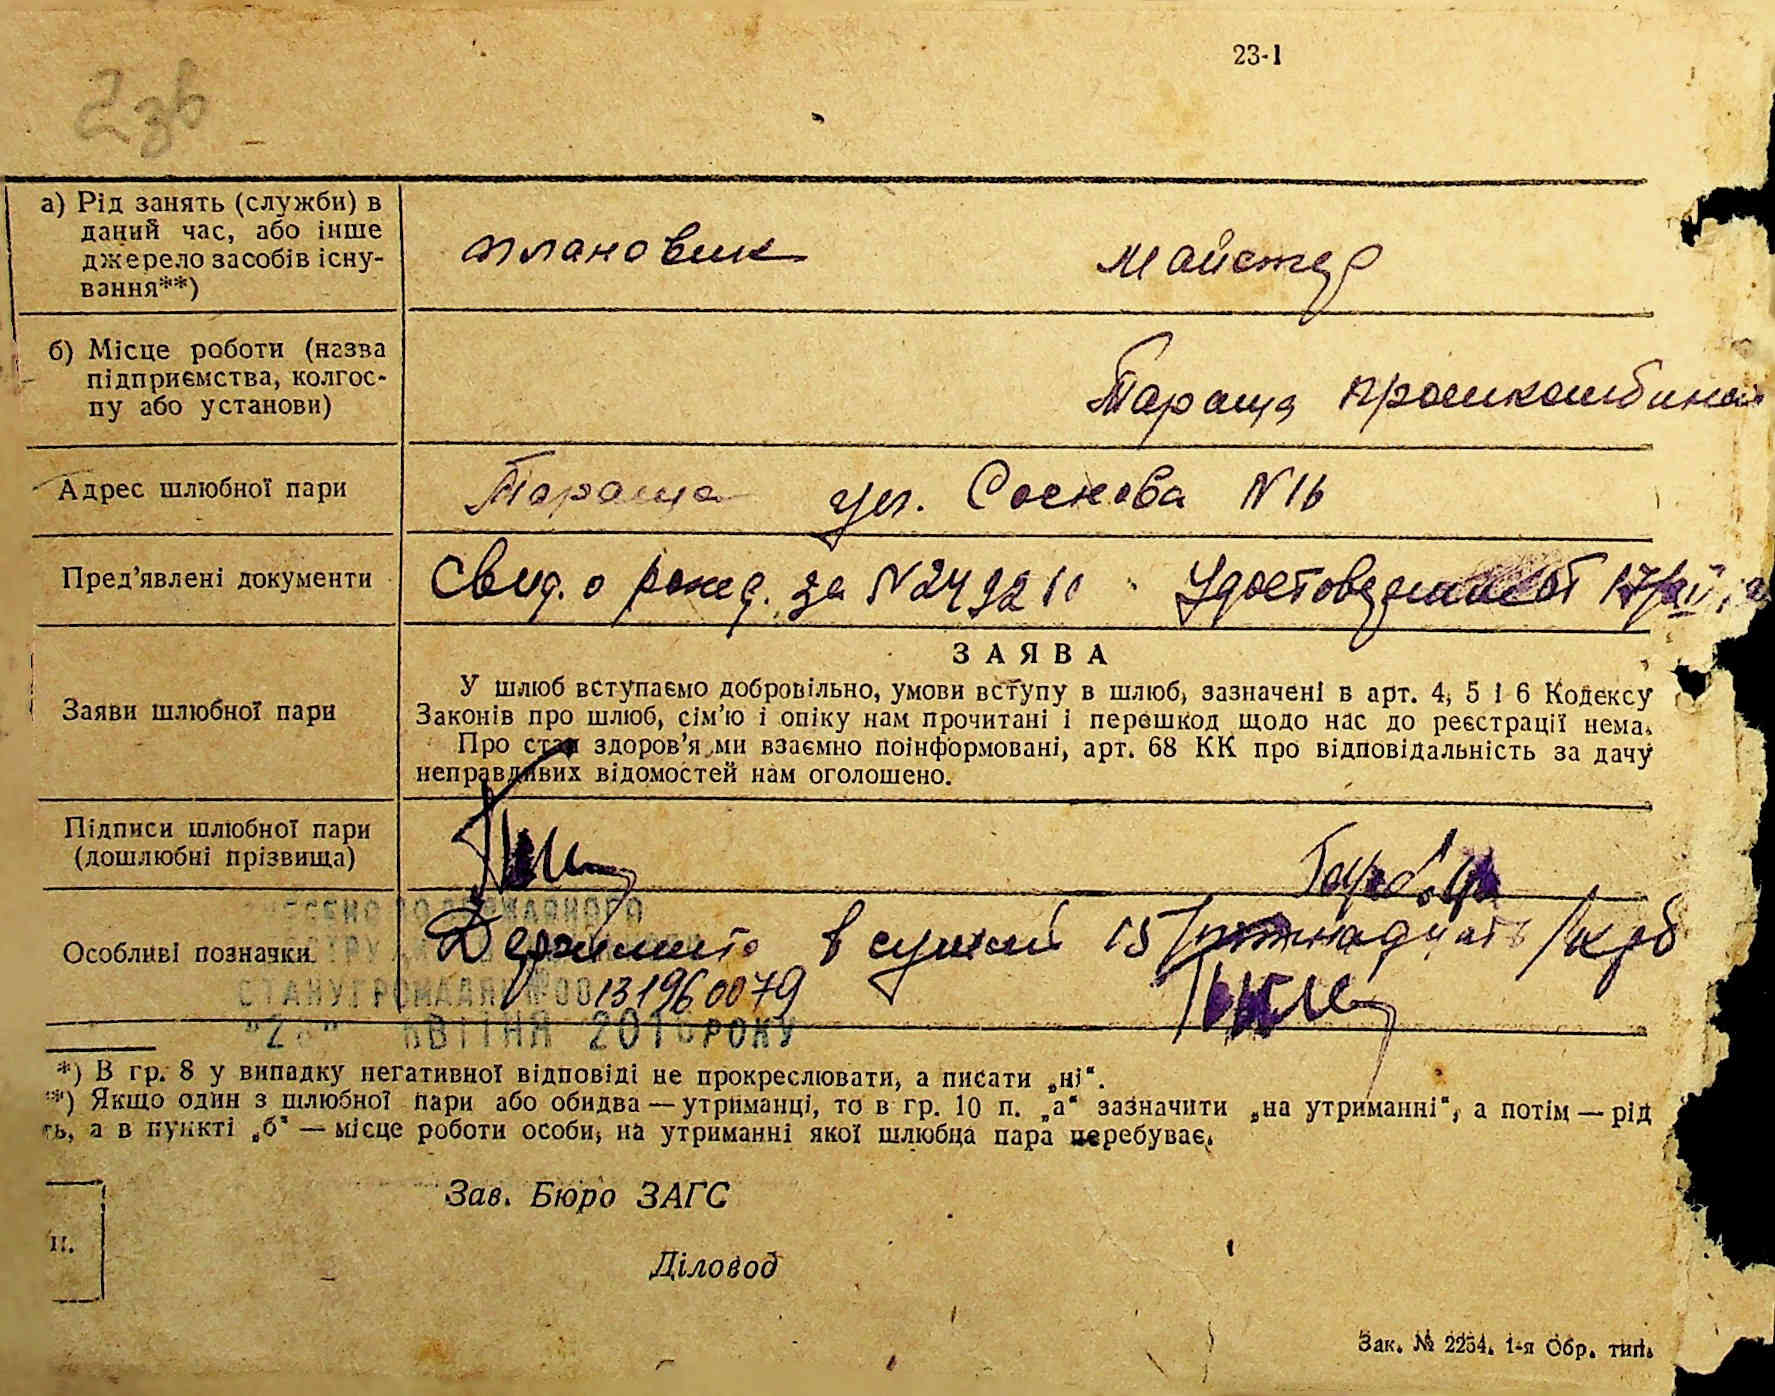 23-1
2зв
а) Рід занять (служби) в
даний час, або інше
джерело засобів існу-
вання**)
плановик майстер
б) Місце роботи (назва
підприємства, колгос-
пу або установи)
Тараща промкомбинат
Адрес шлюбної пари
Тараща ул. Соснова N 16
Пред’явлені документи
Свид. о рожд. за N 2492 Удостоверение от 17/
ЗАЯВА
Заяви шлюбної пари
У шлюб вступаємо добровільно, умови вступу в шлюб, зазначені в арт. 4, 5 і 6 Кодексу
Законів про шлюб, сім’ю і опіку нам прочитані і перешкод щодо нас до реєстрації нема.
Про стан здоров’я ми взаємно поінформовані, арт. 68 КК про відповідальність за дачу
неправдивих відомостей нам оголошено.
Підписи шлюбної пари
(дошлюбні прізвища)
ВНЕСЕНО ДО ДЕРЖАВНОГО
Особливі позначки.
Держмито в сумме 15 /пятнадцать/ крб
СТАНУ ГРОМАДЯН №00131960079
КВІТНЯ 201 РОКУ
*) В гр. 8 у випадку негативної відповіді не прокреслювати, а писати „ні“.
**) Якщо один з шлюбної пари або обидва — утриманці, то в гр. 10 п. „а“ зазначити „на утриманні“, а потім — рід
ть, а в пункті „б“ — місце роботи особи, на утриманні якої шлюбна пара перебуває.
Зав. Бюро ЗАГС
п.
Діловод
Зак. № 2254. 1-я Обр. тип.